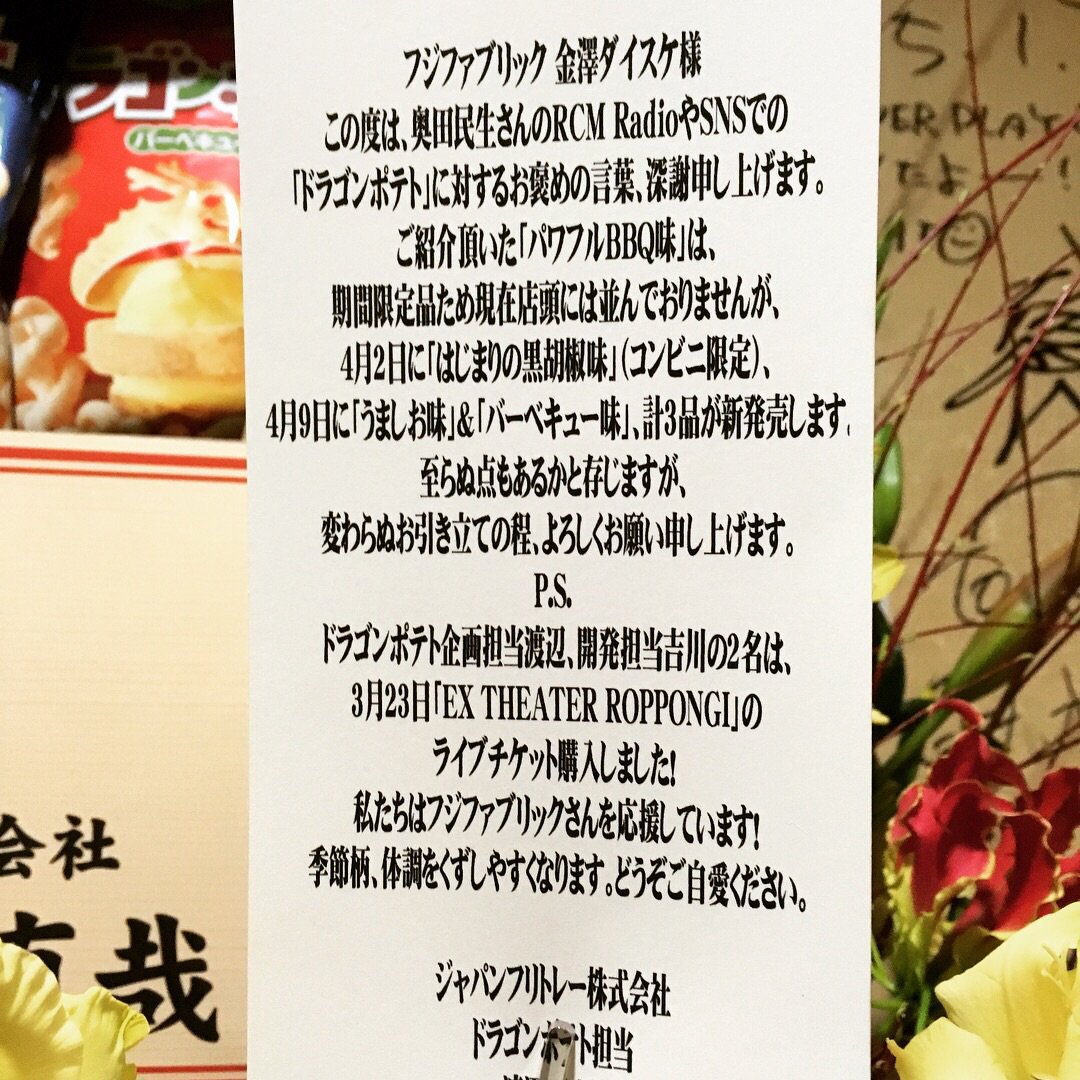 フジファブリック 金澤ダイスケ様
この度は、奥田民生さんのRCM RadioやSNSでの
「ドラゴンポテト」に対するお褒めの言葉、深謝申し上げます。
ご紹介頂いた「パワフルBBQ味」は、
期間限定品ため現在店頭には並んでおりませんが、
4月2日に「はじまりの黒胡椒味」(コンビニ限定)、
4月9日に「うましお味」&「バーベキュー味」、計3品が新発売します。
至らぬ点もあるかと存じますが、
変わらぬお引き立ての程、よろしくお願い申し上げます。
P.S.
ドラゴンポテト企画担当渡辺、開発担当吉川の2名は、
3月23日「EX THEATER ROPPONGI」の
ライブチケット購入しました!
私たちはフジファブリックさんを応援しています!
季節柄、体調をくずしやすくなります。どうぞご自愛ください。
ジャパンフリトレー株式会社
ドラゴンポテト担当
ラゴン
バーベキュ
会社
哉